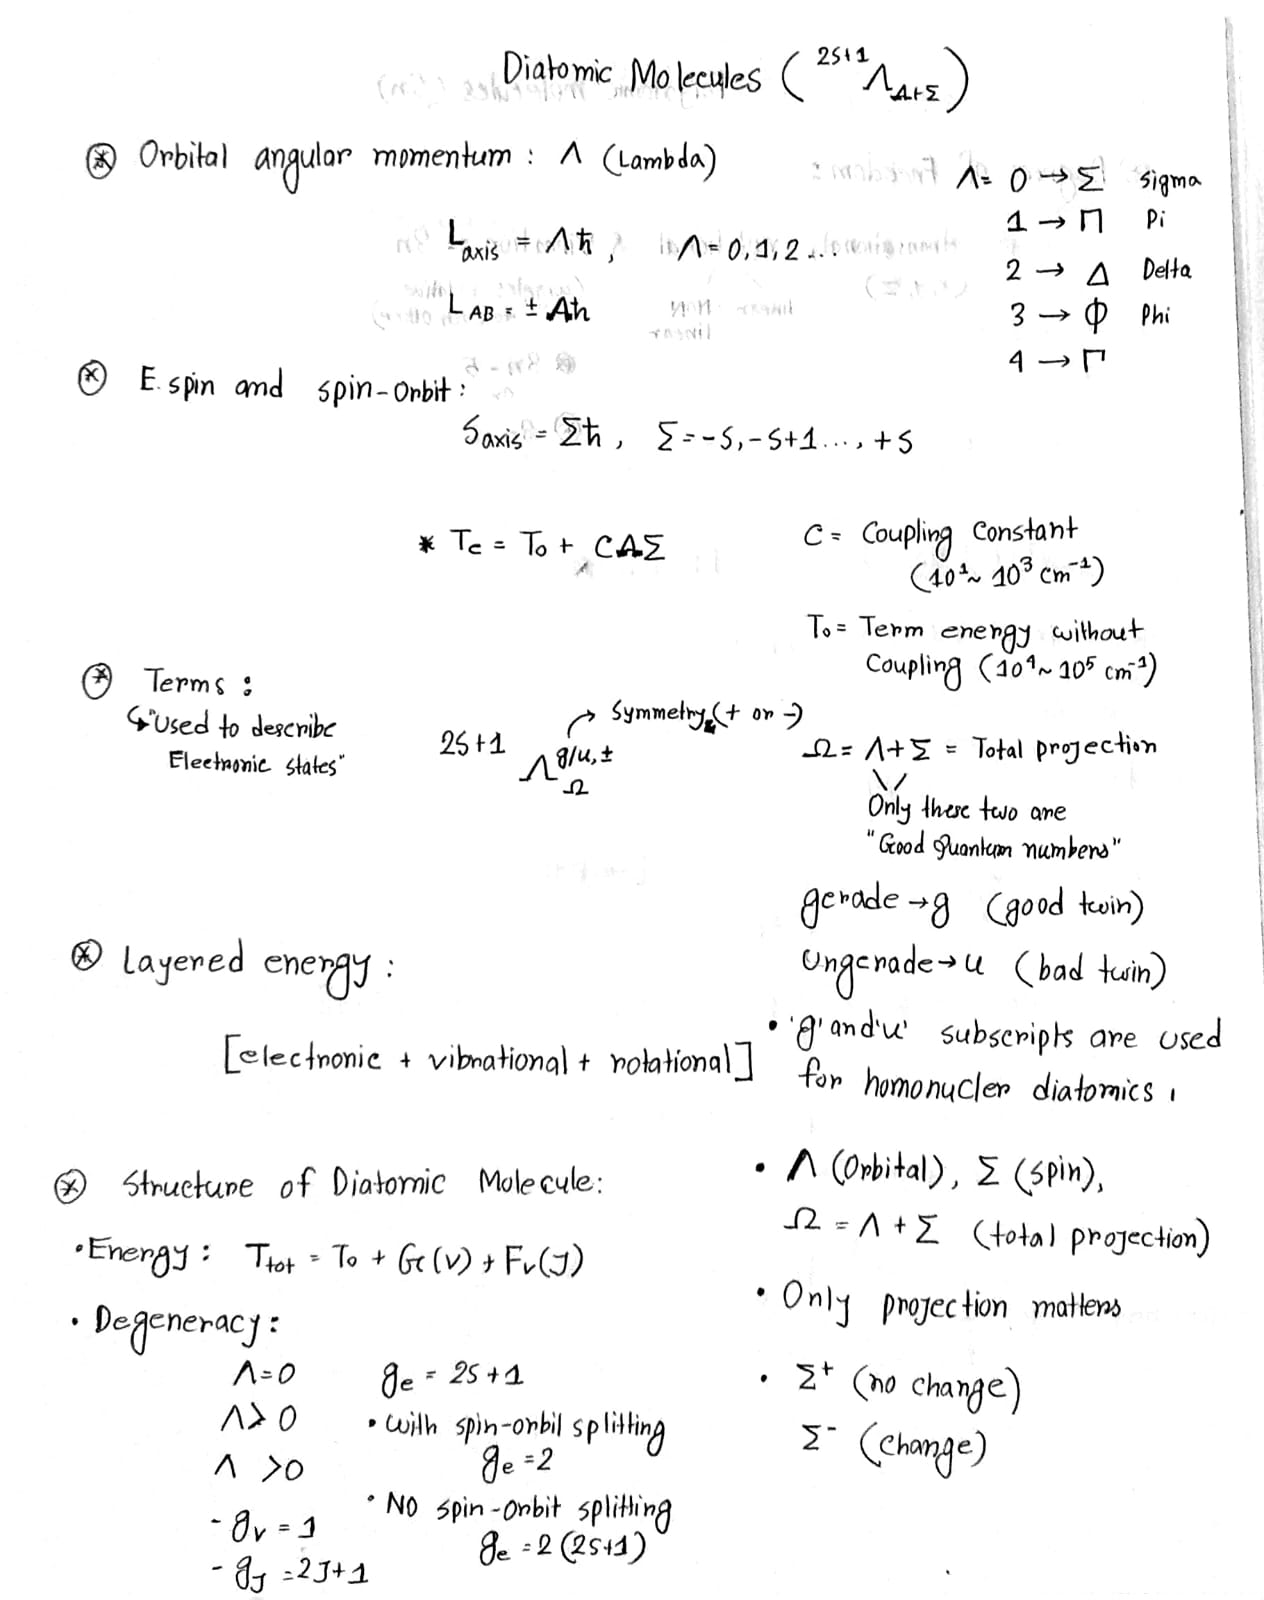 Diatomic Molecules ( ²ˢ⁺¹Λ_Λ+Σ )
⊛ Orbital angular momentum : Λ (Lambda)
Λ= 0 → Σ Sigma
1 → Π Pi
2 → Δ Delta
3 → Φ Phi
4 → Γ
L_axis = Λħ , Λ = 0, 1, 2 ...
L_AB = ± Λħ
⊛ E. spin and spin-orbit :
S_axis = Σħ , Σ = -S, -S+1 ..., +S
* Te = To + CΛΣ
C = Coupling Constant
(10¹~ 10³ cm⁻¹)
To = Term energy without
Coupling (10⁴~ 10⁵ cm⁻¹)
⊛ Terms :
↳ "Used to describe
Electronic states"
2S+1 Λ g/u, ± Ω
→ Symmetry (+ or -)
Ω = Λ+Σ = Total projection
Only these two are
"Good quantum numbers"
gerade → g (good twin)
Ungerade → u (bad twin)
• 'g' and 'u' subscripts are used
for homonucler diatomics .
⊛ Layered energy :
[electronic + vibrational + rotational]
⊛ Structure of Diatomic Molecule:
• Energy : T_tot = To + Ge(v) + Fv(J)
• Degeneracy :
Λ=0 ge = 2S+1
Λ>0 • with spin-orbit splitting
Λ >0 ge = 2
• No spin-orbit splitting
ge = 2 (2S+1)
- gv = 1
- gJ = 2J+1
• Λ (Orbital), Σ (spin),
Ω = Λ + Σ (total projection)
• Only projection matters
• Σ⁺ (no change)
Σ⁻ (change)